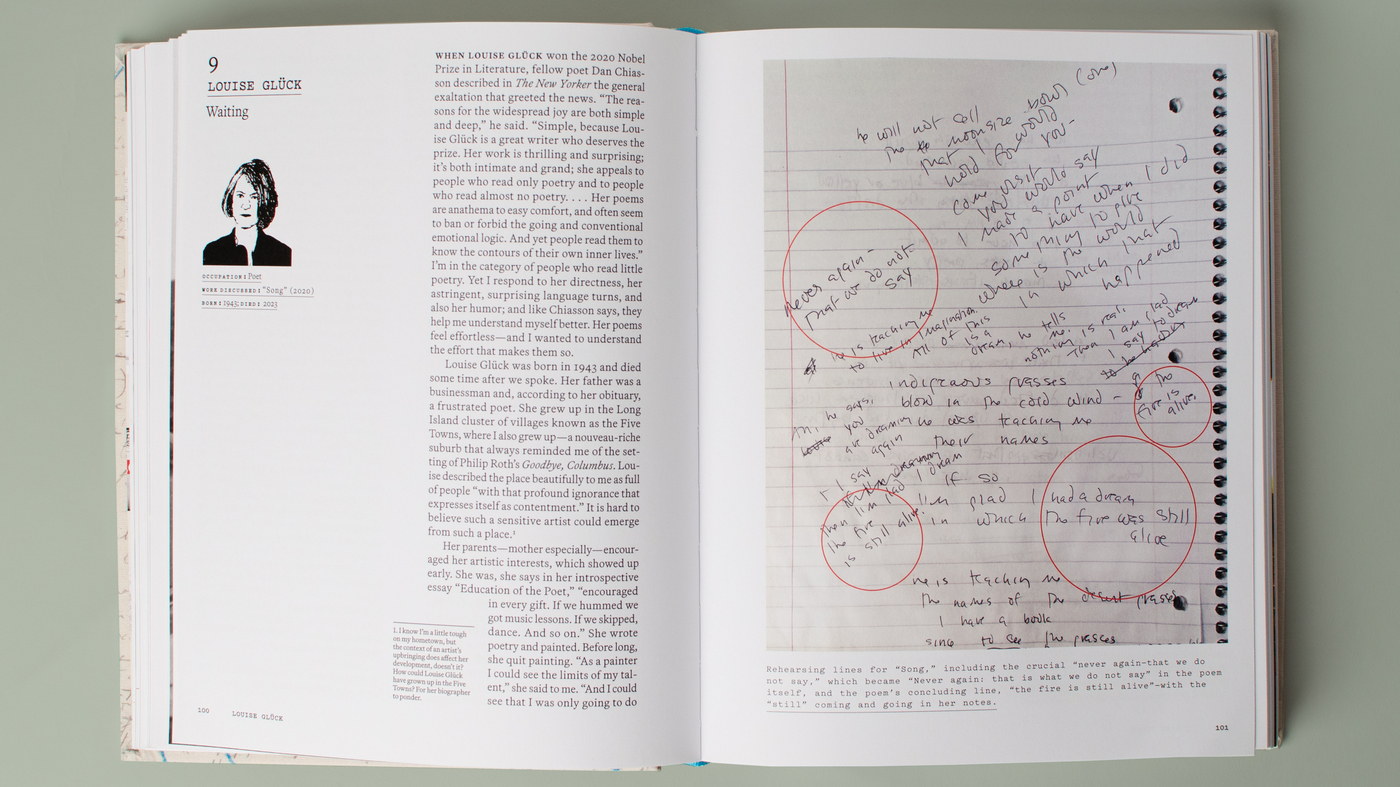 9
LOUISE GLÜCK
Waiting
OCCUPATION: Poet
WORK DISCUSSED: "Song" (2020)
BORN: 1943; DIED: 2023
WHEN LOUISE GLÜCK won the 2020 Nobel
Prize in Literature, fellow poet Dan Chias-
son described in The New Yorker the general
exaltation that greeted the news. "The rea-
sons for the widespread joy are both simple
and deep," he said. "Simple, because Lou-
ise Glück is a great writer who deserves the
prize. Her work is thrilling and surprising;
it's both intimate and grand; she appeals to
people who read only poetry and to people
who read almost no poetry. . . . Her poems
are anathema to easy comfort, and often seem
to ban or forbid the going and conventional
emotional logic. And yet people read them to
know the contours of their own inner lives."
I'm in the category of people who read little
poetry. Yet I respond to her directness, her
astringent, surprising language turns, and
also her humor; and like Chiasson says, they
help me understand myself better. Her poems
feel effortless—and I wanted to understand
the effort that makes them so.
Louise Glück was born in 1943 and died
some time after we spoke. Her father was a
businessman and, according to her obituary,
a frustrated poet. She grew up in the Long
Island cluster of villages known as the Five
Towns, where I also grew up—a nouveau-riche
suburb that always reminded me of the set-
ting of Philip Roth's Goodbye, Columbus. Lou-
ise described the place beautifully to me as full
of people "with that profound ignorance that
expresses itself as contentment." It is hard to
believe such a sensitive artist could emerge
from such a place.¹
Her parents—mother especially—encour-
aged her artistic interests, which showed up
early. She was, she says in her introspective
essay "Education of the Poet," "encouraged
in every gift. If we hummed we
got music lessons. If we skipped,
dance. And so on." She wrote
poetry and painted. Before long,
she quit painting. "As a painter
I could see the limits of my tal-
ent," she said to me. "And I could
see that I was only going to do
1. I know I'm a little tough
on my hometown, but
the context of an artist's
upbringing does affect her
development, doesn't it?
How could Louise Glück
have grown up in the Five
Towns? For her biographer
to ponder.
100 LOUISE GLÜCK
he will not call
the moonsize bowl (one)
that I would
hold for you—
come visit
you would say
I made a point
to have when I did
something to give
where is the world
in which that
happened
never again—
that we do not
say
he is teaching me
to live in imagination.
All of this
is a
dream, he tells
me.
nothing is real.
Then I am glad
I say to dream
indigenous grasses
blow in the cold wind—
he was teaching me
their names
Ah, he says,
you
are dreaming
again
the
fire is
alive.
+ I say
then I'm glad I dream
the fire
is still alive.
if so
I'm glad I had a dream
in which the fire was still
alive
he is teaching me
the names of the desert grasses
I have a book
sing to see the grasses
Rehearsing lines for "Song," including the crucial "never again—that we do
not say," which became "Never again: that is what we do not say" in the poem
itself, and the poem's concluding line, "the fire is still alive"—with the
"still" coming and going in her notes.
101